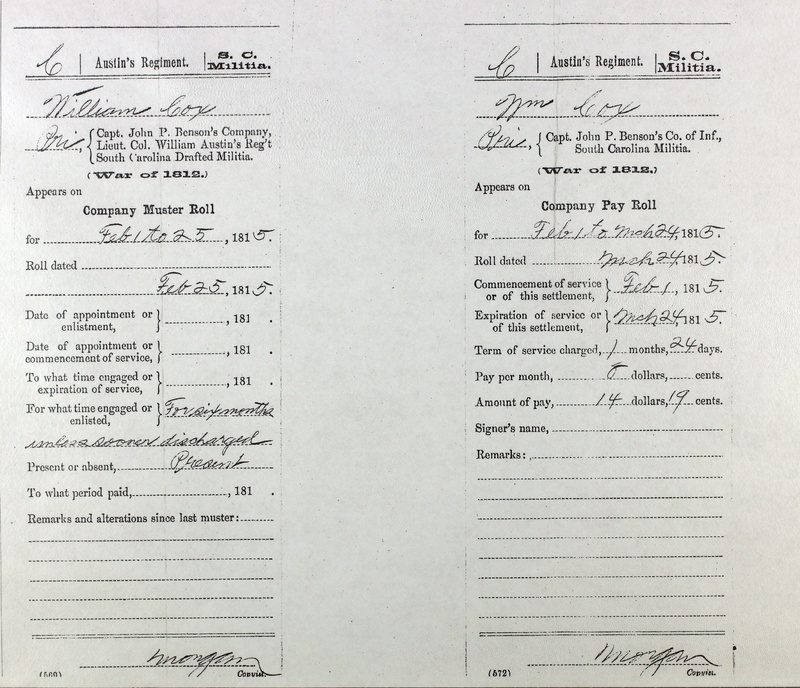 C | Austin's Regiment. | S. C. Militia.
William Cox
Pri, { Capt. John P. Benson's Company,
Lieut. Col. William Austin's Reg't
South Carolina Drafted Militia.
(War of 1812.)
Appears on
Company Muster Roll
for Feb 1 to 25, 1815.
Roll dated
Feb 25, 1815.
Date of appointment or
enlistment, } , 181 .
Date of appointment or
commencement of service, } , 181 .
To what time engaged or
expiration of service, } , 181 .
For what time engaged or
enlisted, } For six months
unless sooner discharged
Present or absent, Present
To what period paid, , 181 .
Remarks and alterations since last muster:
Morgan
(569) Copyist.
C | Austin's Regiment. | S. C. Militia.
Wm Cox
Pri, { Capt. John P. Benson's Co. of Inf.,
South Carolina Militia.
(War of 1812.)
Appears on
Company Pay Roll
for Feb 1 to Mch 24, 1815.
Roll dated Mch 24, 1815.
Commencement of service
or of this settlement, } Feb 1, 1815.
Expiration of service or
of this settlement, } Mch 24, 1815.
Term of service charged, 1 months, 24 days.
Pay per month, 8 dollars, cents.
Amount of pay, 14 dollars, 19 cents.
Signer's name,
Remarks:
Morgan
(572) Copyist.